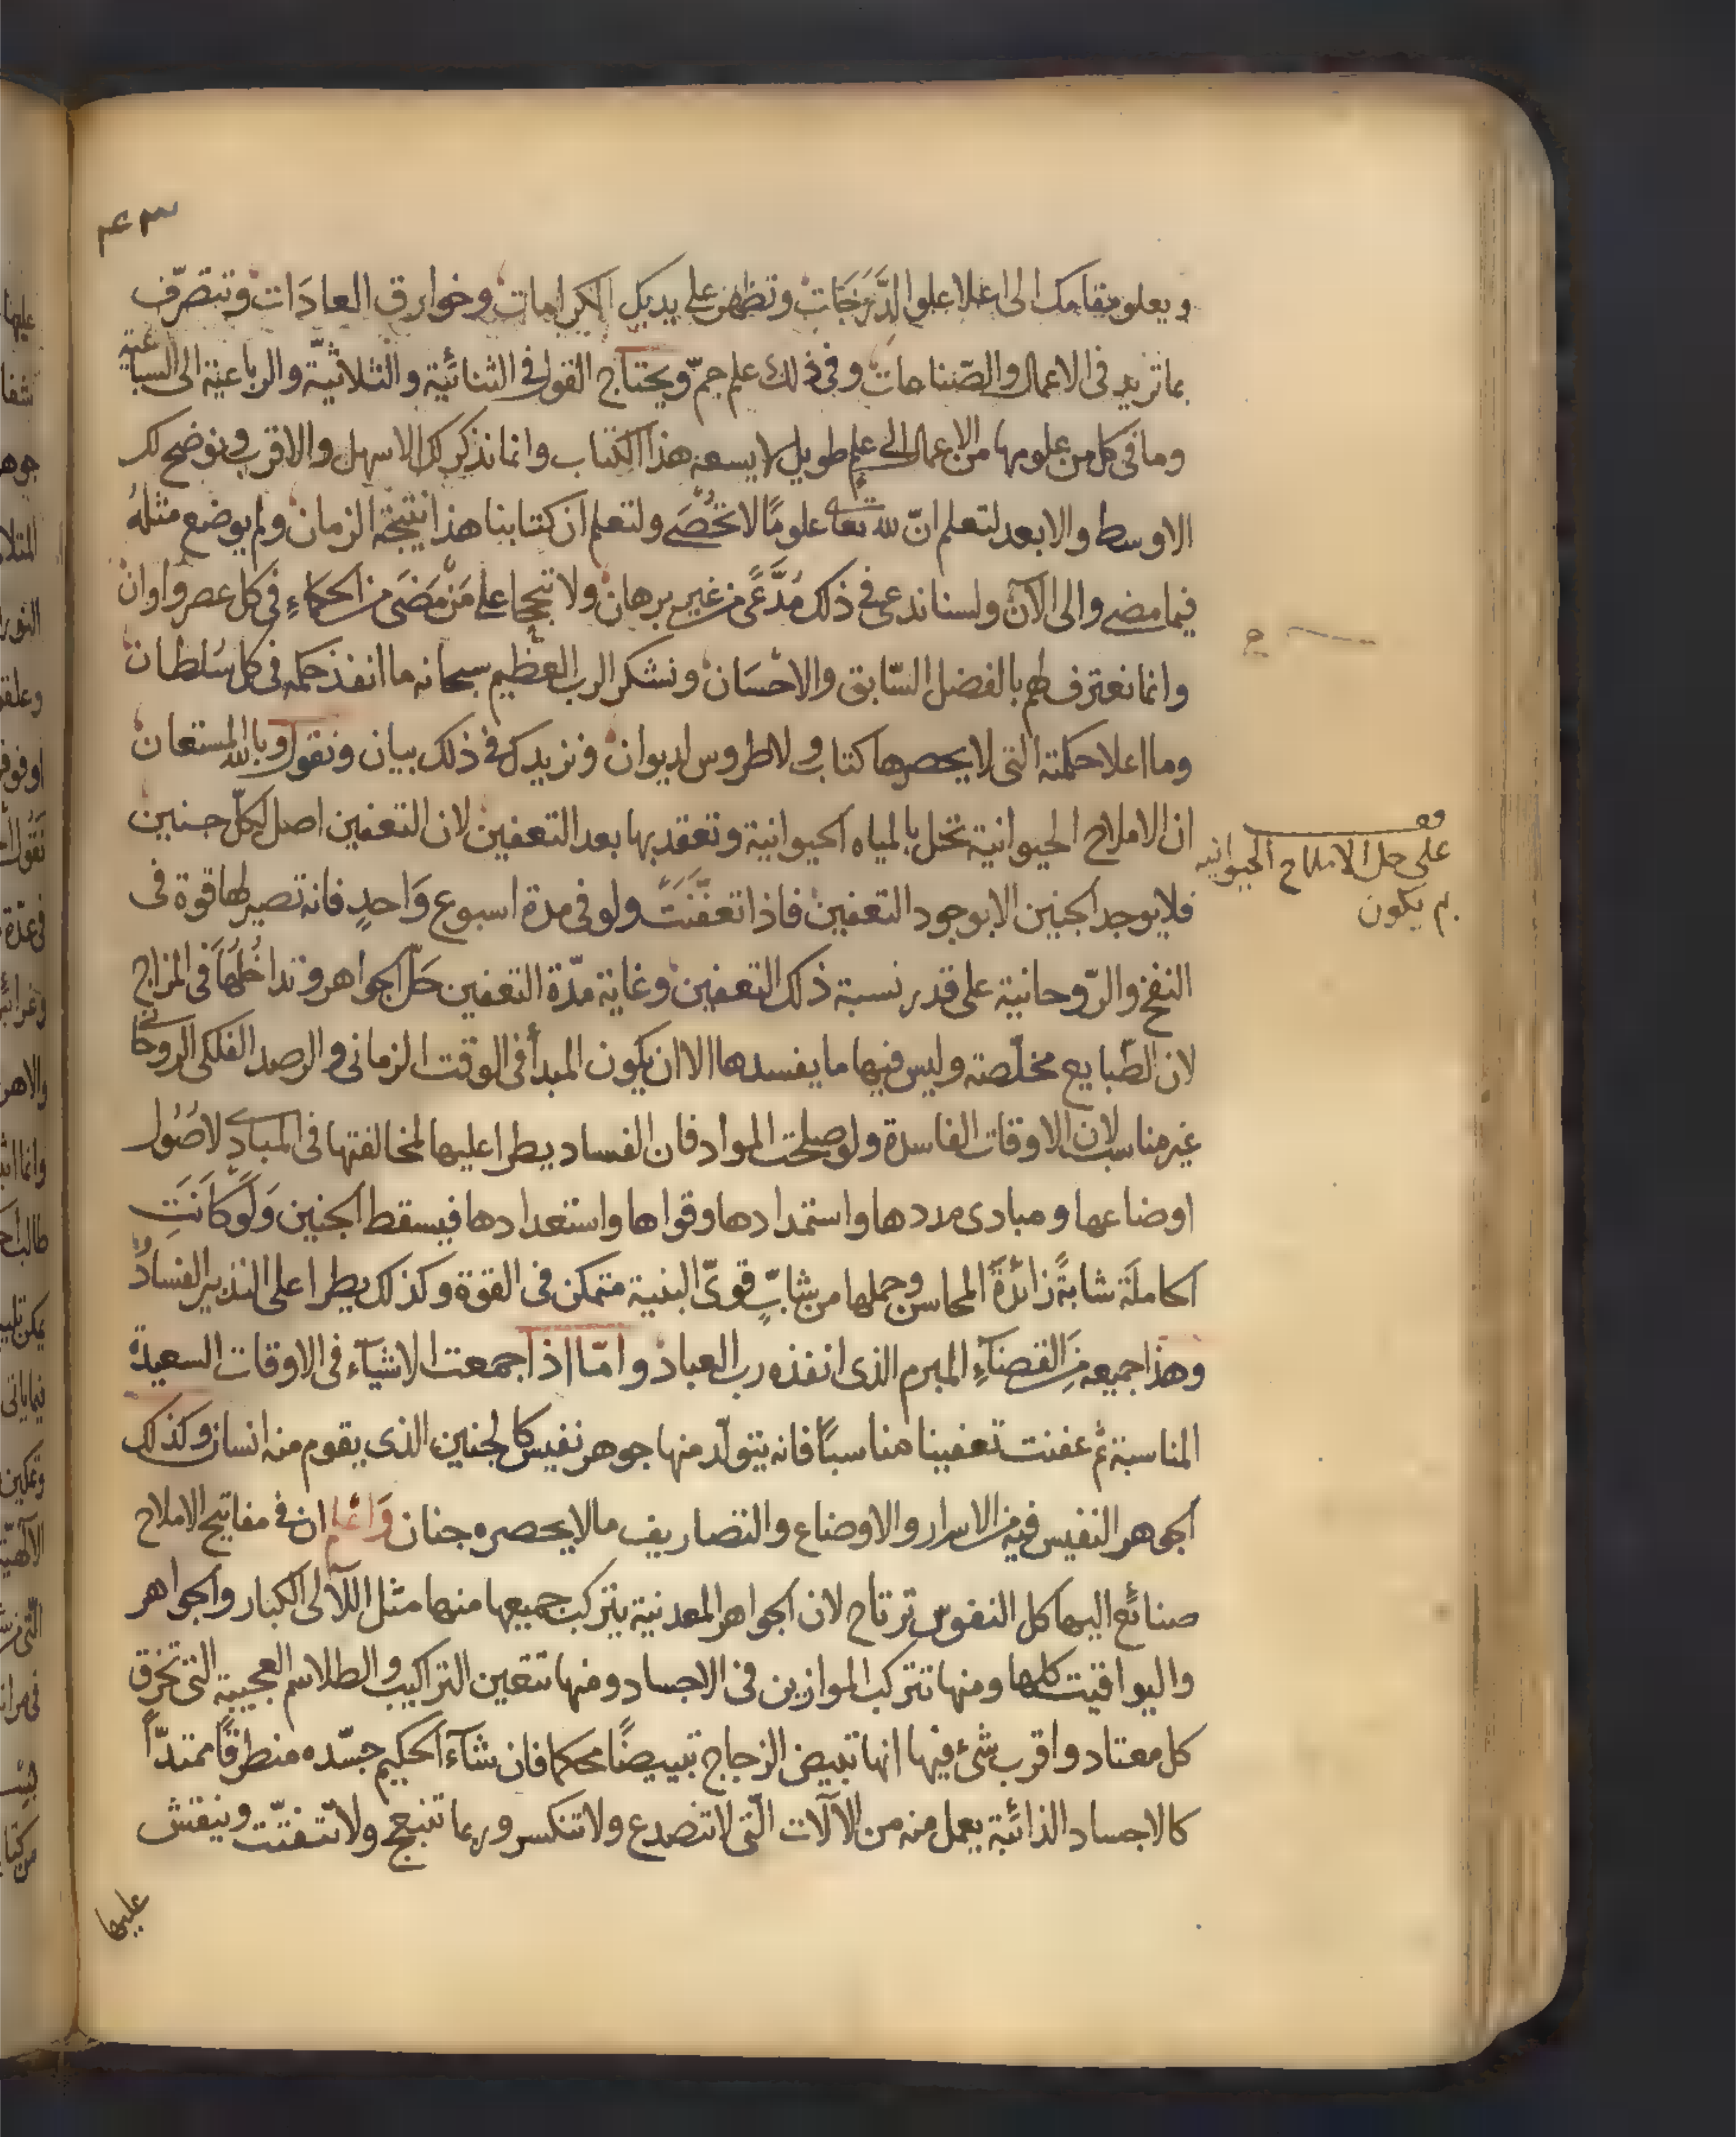 ويعلو مقامك الى اعلا علو الدَّرَجَات وتظهر على يديك الكرامات وخوارق العادَات وتتصرّف
بما تريد فى الاعمال والصّناعات وفى ذلك علم جمّ ويحتاج القول فى الثنائية والثلاثيّة والرباعية الى السباعية
وما فى كل من علومها من الاعمال الى علمٍ طويل لا يسعه هذا الكتاب وانما نذكر لك الاسهل والاقرب ونوضح لك
الاوسط والابعد لتعلم انّ لله تعالى علومًا لا تُحْصَى ولتعلم ان كتابنا هذا نتيجة الزمان ولم يوضع مثلهُ
فيما مضى والى الآن ولسنا ندعى فى ذلك مُدَّعًى من غير برهان ولا تبجحا على مَنْ مَضَى من الحكماءِ فى كل عصر واوان
وانما نعترف لهم بالفضل السّابق والاحْسَان ونشكر الرب العظيم سبحانه ما انفذ حكمه فى كل سُلطان
وما اعلا حكمته التى لا يحصرها كتاب ولا طروس لديوان ونزيدك فى ذلك بيان ونقول وبالله المستعان
ان الاملاح الحيوانية تحل بالمياه الحيوانية وتعقد بها بعد التعفين لان التعفين اصل لكلّ جنين
فلا يوجد الجنين الا بوجود التعفين فاذا تعفَّنَتْ ولو فى مدة اسبوع وَاحدٍ فانه تصير لها قوة فى
النفخ والرّوحانية على قدر نسبة ذلك التعفين وغاية مدّة التعفين حَلّ الجواهر وتداخُلُهَا فى المزاج
لان الطّبايع مخلّصة وليس فيها ما يفسدها الا ان يكون المبدأ فى الوقت الزمانى والرصد الفلكى الروحانى
غير مناسب لان الاوقات الفاسدة ولو صلحت المواد فان الفساد يطرا عليها لمخالفتها فى المبادى لاصُول
اوضاعها ومبادى مددها واستمدادها وقواها واستعدادها فيسقط الجنين وَلَوْ كَانَتِ
الحاملَة شابةً زائدةً المحاسن وحملها من شابّ قوىّ البنية متمكن فى القوة وكذلك يطرا على التدبير الفسادُ
وهذا جميعه مِنَ القضآءِ المبرم الذى انفذه رب العباد وامّا اذا اجمعت الاشيآء فى الاوقات السعيدة
المناسبة ثم عفنت تعفينا مناسبًا فانه يتولّد منها جوهر نفيس كالجنين الذى يقوم منه انسان وكذلك
الجوهر النفيس فيه من الاسرار والاوضاع والتصاريف ما لا يحصره جنان وَاعْلم ان فى مفاتيح الاملاح
صنائع اليها كل النفوس ترتاح لان الجواهر المعدنية يتركب جميعها منها مثل اللآلى الكبار والجواهر
واليواقيت كلها ومنها تتركب الموازين فى الاجساد ومنها تتعين التراكيب والطلاسم العجيبة التى تخرق
كل معتاد واقرب شئ فيها انها تبيض الزجاج تبييضًا محكما فان شآءَ الحكيم جسّده منطرقًا ممتدًّا
كالاجساد الذائبة يعمل منه من الآلات الّتى لا تنصدع ولا تنكسر وربما تنبعج ولا تتفتّت وينقش
عليها
على حل الاملاح الحيوانيه
بم يكون